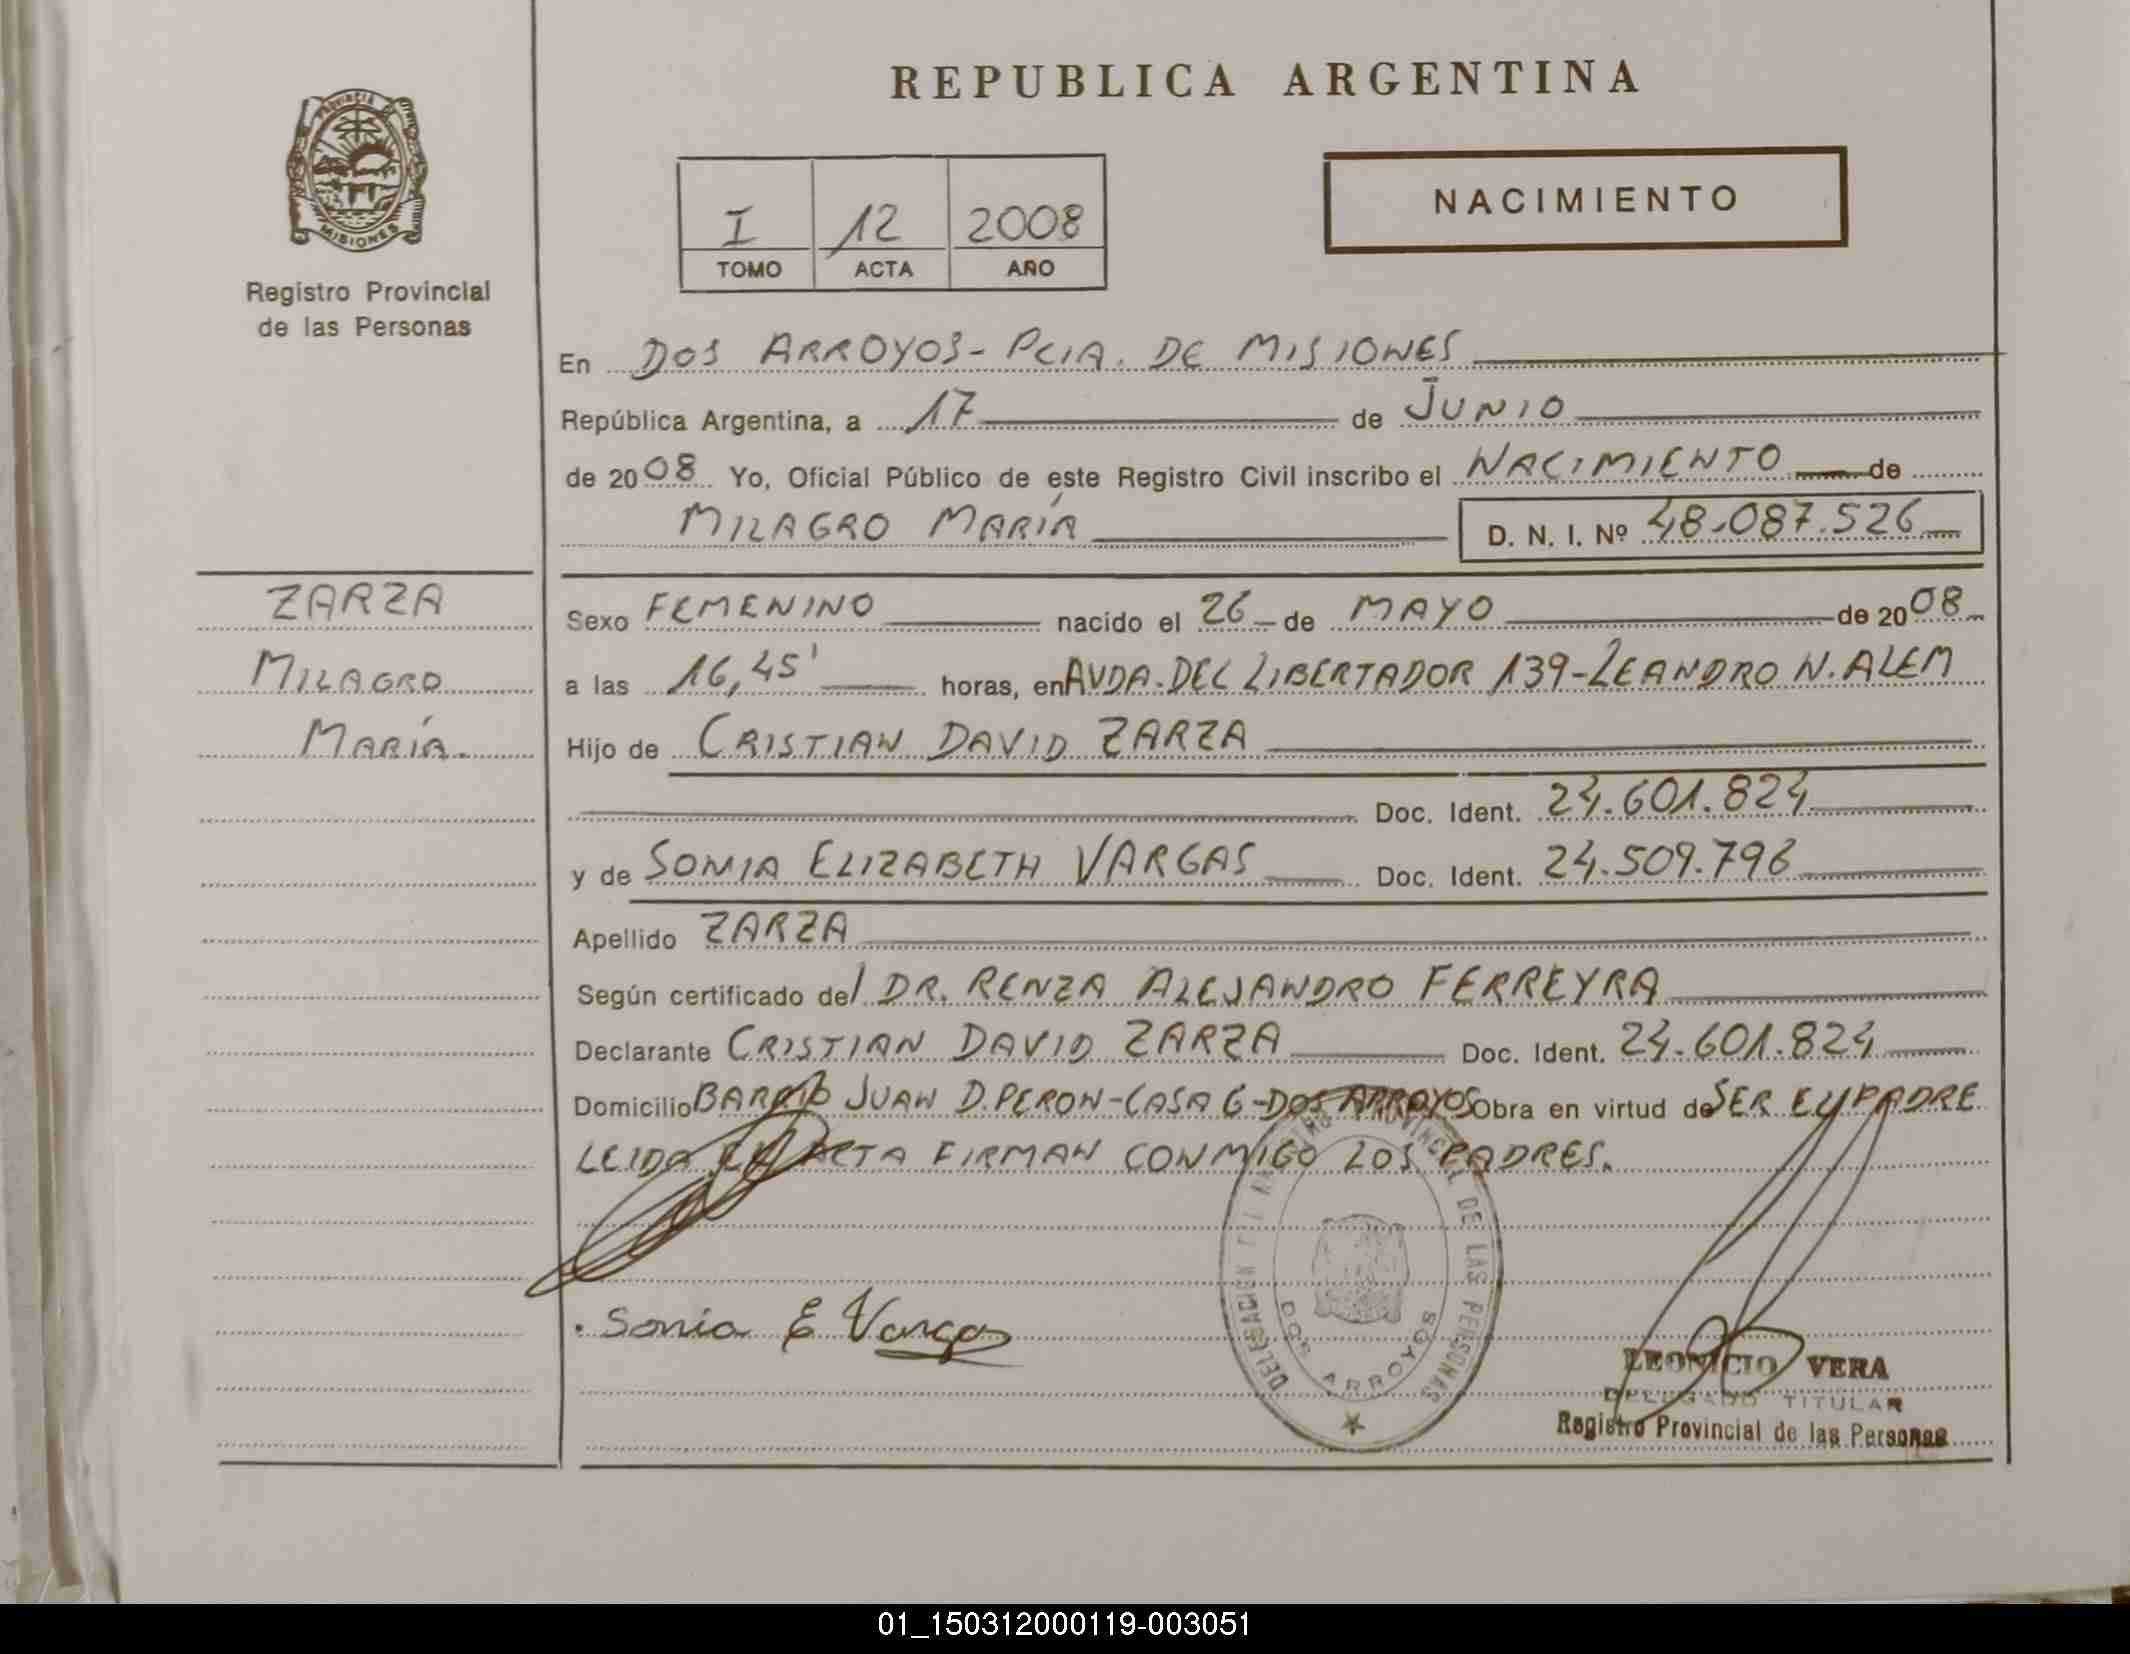 REPUBLICA ARGENTINA
PROVINCIA DE MISIONES
Registro Provincial
de las Personas
I 12 2008
TOMO ACTA AÑO
NACIMIENTO
En DOS ARROYOS - PCIA. DE MISIONES
República Argentina, a 17 de JUNIO
de 2008 Yo, Oficial Público de este Registro Civil inscribo el NACIMIENTO de
MILAGRO MARÍA D. N. I. Nº 48.087.526
ZARZA
MILAGRO
MARÍA.
Sexo FEMENINO nacido el 26 de MAYO de 2008
a las 16,45' horas, en AVDA. DEL LIBERTADOR 139 - LEANDRO N. ALEM
Hijo de CRISTIAN DAVID ZARZA
Doc. Ident. 24.601.824
y de SONIA ELIZABETH VARGAS Doc. Ident. 24.509.796
Apellido ZARZA
Según certificado del DR. RENZA ALEJANDRO FERREYRA
Declarante CRISTIAN DAVID ZARZA Doc. Ident. 24.601.824
Domicilio BARRIO JUAN D. PERON - CASA 6 - DOS ARROYOS Obra en virtud de SER EL PADRE
LEIDA EL ACTA FIRMAN CONMIGO LOS PADRES.
Sonia E Vargas
DELEGACION DEL REGISTRO PROVINCIAL DE LAS PERSONAS
DOS ARROYOS
LEONICIO VERA
DELEGADO TITULAR
Registro Provincial de las Personas
01_150312000119-003051